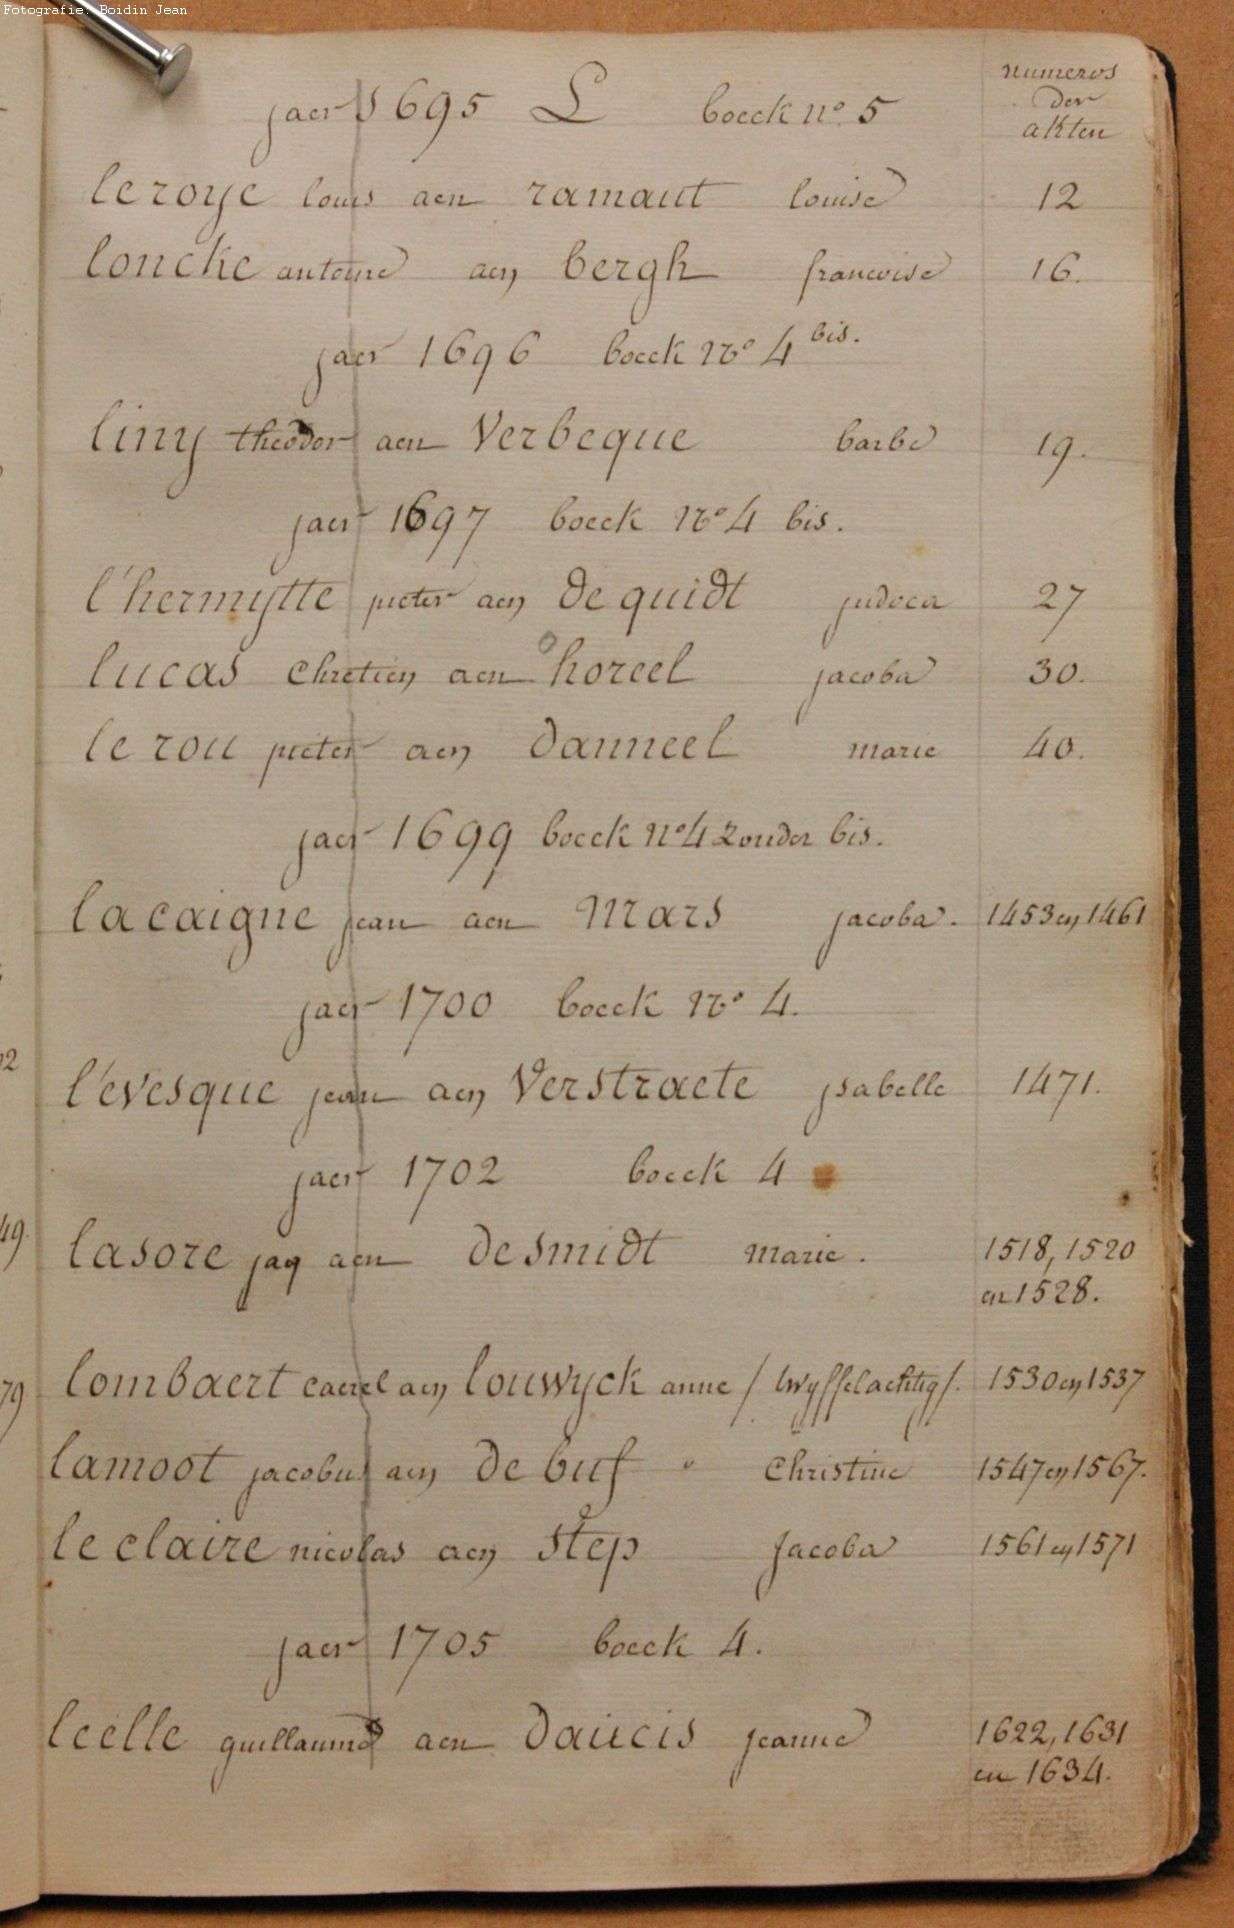 Fotografie: Boidin Jean
numeros
der
akten
jaer 1695 L boeck no. 5
leroye louis aen ramaut louise 12
loncke antoine aen bergh francoise 16.
jaer 1696 boeck no 4 bis.
liny theodor aen Verbeque barbe 19.
jaer 1697 boeck no 4 bis.
l'hermytte pieter aen de quidt judoca 27
lucas chretien aen horeel jacoba 30.
le rou pieter aen danneel marie 40.
jaer 1699 boeck no 4 zonder bis.
lacaigne jean aen Mars jacoba. 1453 en 1461
jaer 1700 boeck no 4.
l'evesque jean aen Verstraete ysabelle 1471.
jaer 1702 boeck 4
lasore jaq aen desmidt marie. 1518, 1520
en 1528.
lombaert caerel aen louwyck anne / twyffelachtig /. 1530 en 1537
lamoot jacobus aen de buf " christine 1547 en 1567.
le claire nicolas aen step jacoba 1561 en 1571
jaer 1705 boeck 4.
leelle guillaume aen daucis jeanne 1622, 1631
en 1634.